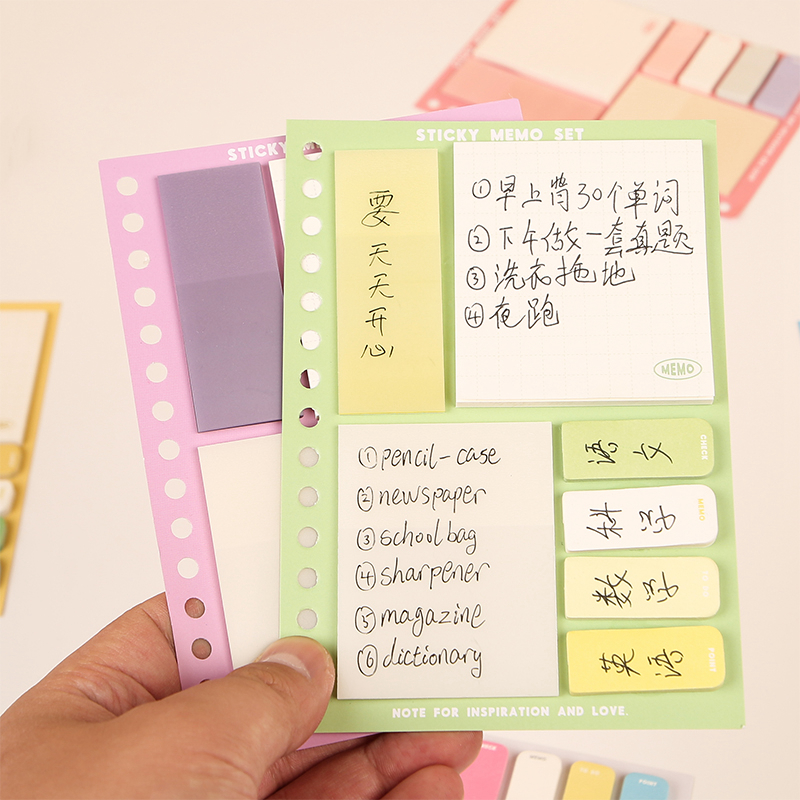 STICKY MEMO SET
STICKY
要天天开心
①早上背30个单词
②下午做一套真题
③洗衣拖地
④夜跑
MEMO
①pencil-case
②newspaper
③schoolbag
④sharpener
⑤magazine
⑥dictionary
语文
CHECK
科学
MEMO
数学
TO DO
英语
POINT
NOTE FOR INSPIRATION AND LOVE.
MEMO
TO DO
POINT